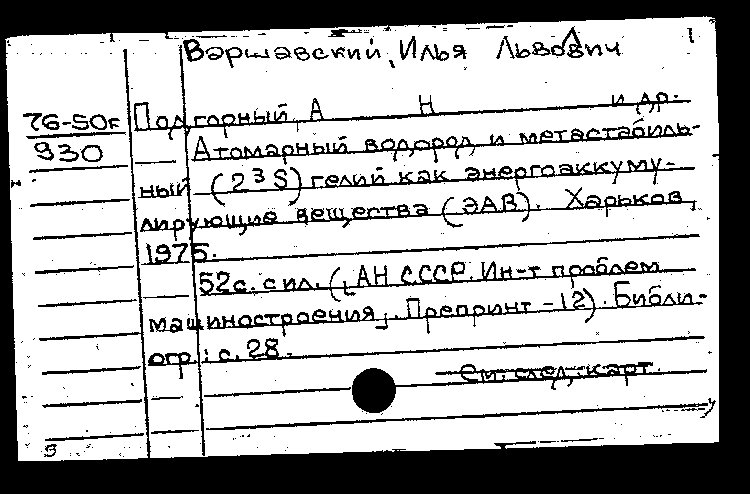 Варшавский, Илья Львович 1
76-50F Подгорный, А Н и др.
930 Атомарный водород и метастабиль-
ный (2³S) гелий как энергоаккуму-
лирующие вещества (ЭАВ). Харьков,
1975.
52с. с ил. (АН СССР. Ин-т проблем
машиностроения. Препринт -12). Библи-
огр.: с. 28.
См. след. карт.